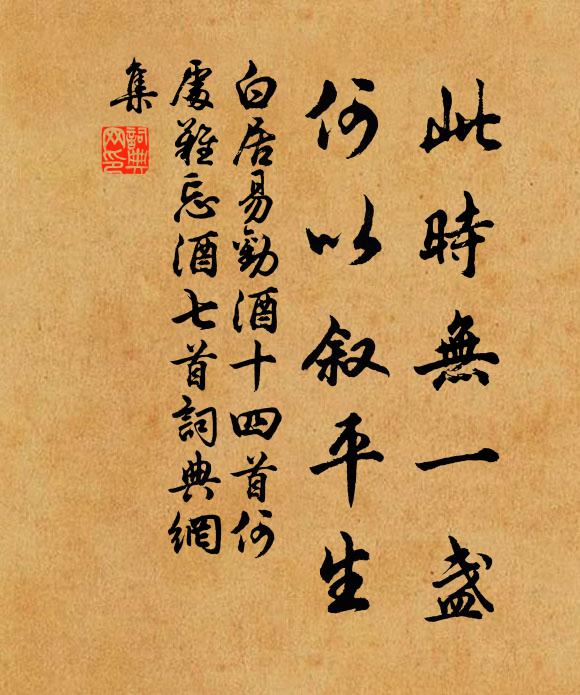 此時無一盏
何以叙平生
白居易勸酒十四首何
處難忘酒七首詞典網
集
詞典
网印